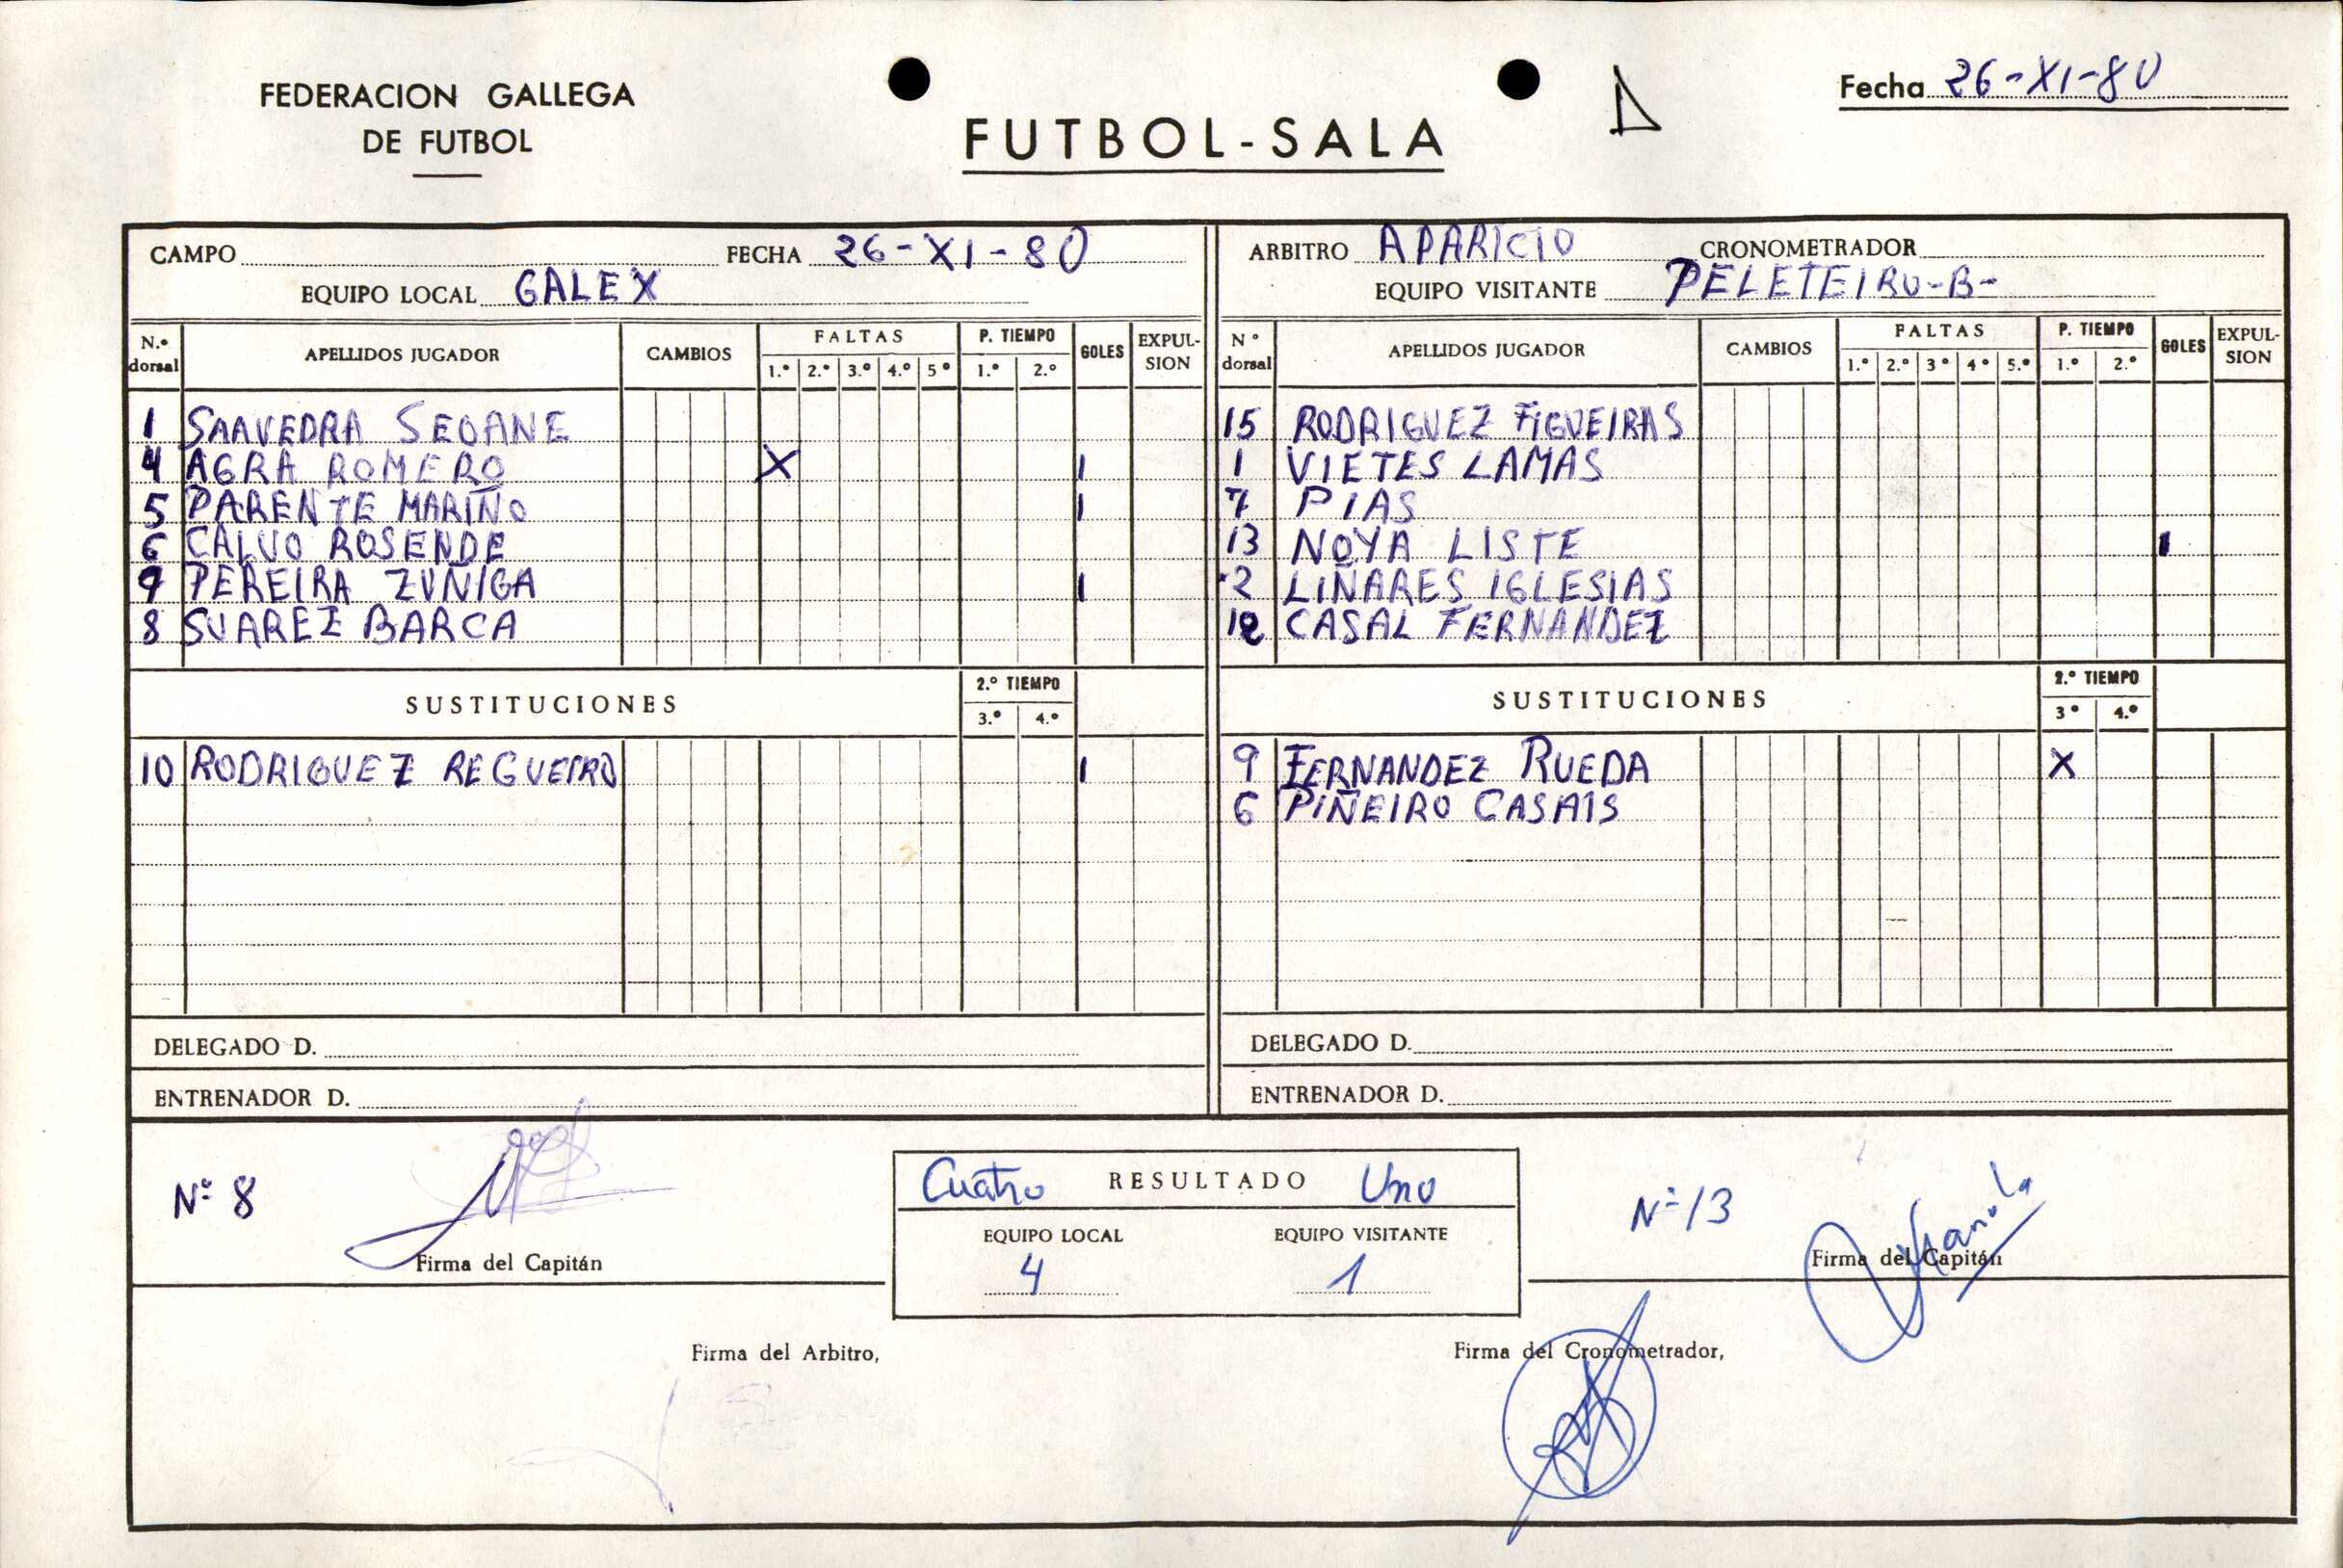 FEDERACION GALLEGA
DE FUTBOL
FUTBOL-SALA
Fecha 26-XI-80
CAMPO FECHA 26-XI-80
EQUIPO LOCAL GALEX
N.º dorsal APELLIDOS JUGADOR CAMBIOS FALTAS 1.º 2.º 3.º 4.º 5º P. TIEMPO 1.º 2.º GOLES EXPULSION
1 SAAVEDRA SEOANE
4 AGRA ROMERO X 1
5 PARENTE MARIÑO 1
6 CALVO ROSENDE
9 PEREIRA ZUÑIGA 1
8 SUAREZ BARCA
SUSTITUCIONES 2.º TIEMPO 3.º 4.º
10 RODRIGUEZ REGUEIRO 1
DELEGADO D.
ENTRENADOR D.
ARBITRO APARICIO CRONOMETRADOR
EQUIPO VISITANTE PELETEIRO-B-
Nº dorsal APELLIDOS JUGADOR CAMBIOS FALTAS 1.º 2.º 3º 4º 5.º P. TIEMPO 1.º 2.º GOLES EXPULSION
15 RODRIGUEZ FIGUEIRAS
1 VIETES LAMAS
7 PIAS
13 NOYA LISTE 1
2 LIÑARES IGLESIAS
12 CASAL FERNANDEZ
SUSTITUCIONES 2.º TIEMPO 3º 4.º
9 FERNANDEZ RUEDA X
6 PIÑEIRO CASAIS
DELEGADO D.
ENTRENADOR D.
Nº 8
Firma del Capitán
Cuatro RESULTADO Uno
EQUIPO LOCAL EQUIPO VISITANTE
4 1
Nº 13
Firma del Capitán
Firma del Arbitro,
Firma del Cronometrador,